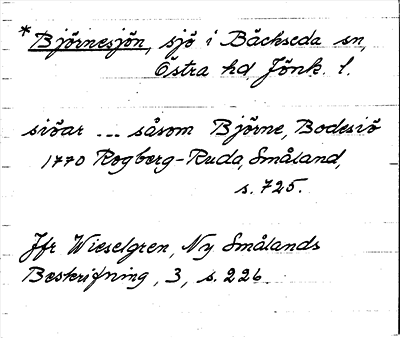 *Björnesjön, sjö i Bäckseda sn,
Östra hd, Jönk. l.
siöar ... såsom Björne, Bodesiö
1770 Rogberg-Ruda, Småland,
s. 725.
Jfr Wieselgren, Ny Smålands
Beskrifning, 3, s. 226